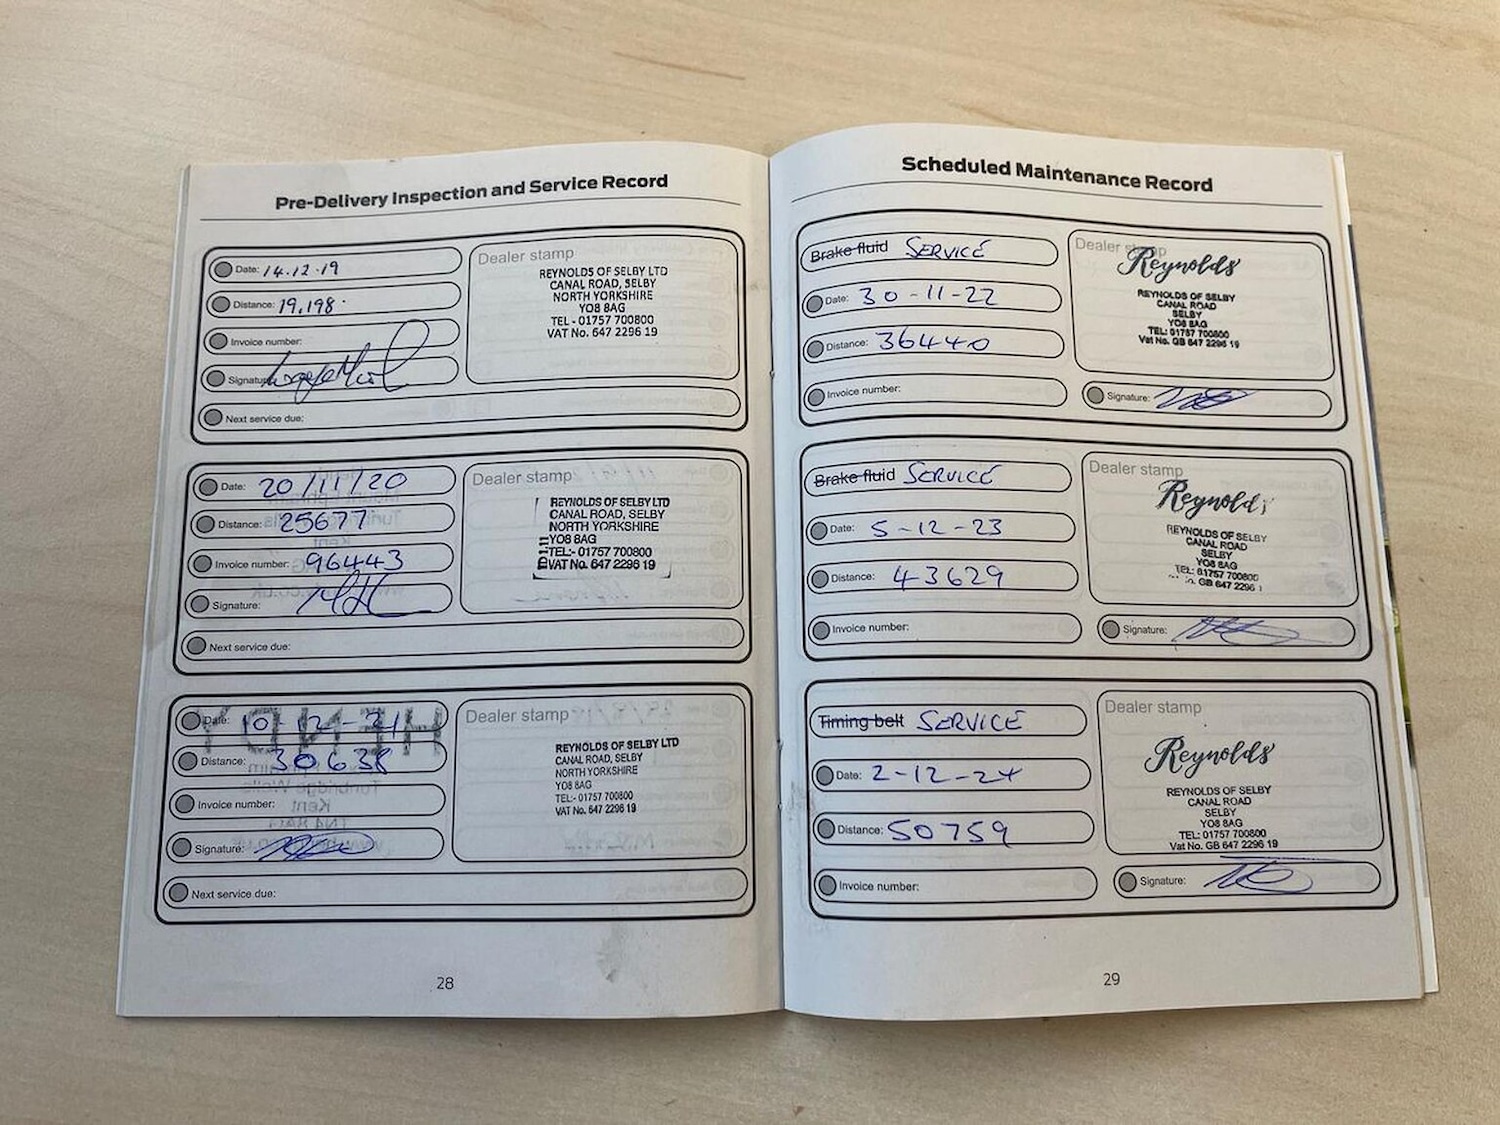 Pre-Delivery Inspection and Service Record
Date: 14.12.19
Distance: 19,198.
Invoice number:
Signature:
Next service due:
Dealer stamp
REYNOLDS OF SELBY LTD
CANAL ROAD, SELBY
NORTH YORKSHIRE
YO8 8AG
TEL - 01757 700800
VAT No. 647 2296 19
Date: 20/11/20
Distance: 25677
Invoice number: 96443
Signature:
Next service due:
Dealer stamp
REYNOLDS OF SELBY LTD
CANAL ROAD, SELBY
NORTH YORKSHIRE
YO8 8AG
TEL:- 01757 700800
VAT No. 647 2296 19
Date: 10-12-21
Distance: 30638
Invoice number:
Signature:
Next service due:
Dealer stamp
REYNOLDS OF SELBY LTD
CANAL ROAD, SELBY
NORTH YORKSHIRE
YO8 8AG
TEL:- 01757 700800
VAT No. 647 2296 19
28
Scheduled Maintenance Record
Brake fluid SERVICE
Date: 30-11-22
Distance: 36440
Invoice number:
Dealer stamp
Reynolds
REYNOLDS OF SELBY
CANAL ROAD
SELBY
YO8 8AG
TEL: 01757 700800
Vat No. GB 647 2296 19
Signature:
Brake fluid SERVICE
Date: 5-12-23
Distance: 43629
Invoice number:
Dealer stamp
Reynolds
REYNOLDS OF SELBY
CANAL ROAD
SELBY
YO8 8AG
TEL: 01757 700800
No. GB 647 2296 1
Signature:
Timing belt SERVICE
Date: 2-12-24
Distance: 50759
Invoice number:
Dealer stamp
Reynolds
REYNOLDS OF SELBY
CANAL ROAD
SELBY
YO8 8AG
TEL: 01757 700800
Vat No. GB 647 2296 19
Signature:
29